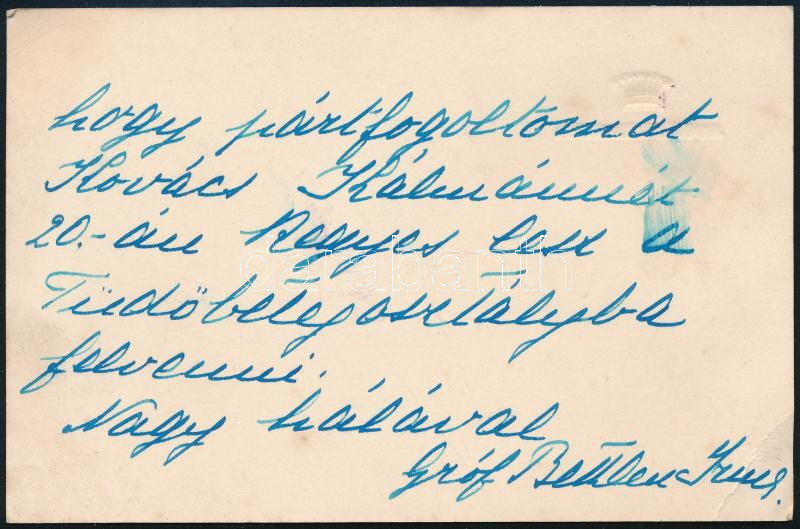 hogy pártfogoltomat
Kovács Kálmánnét
20.-án kegyes lesz a
Tüdőbetegosztályba
felvenni.
Nagy hálával
Gróf Bethlen
darabanth